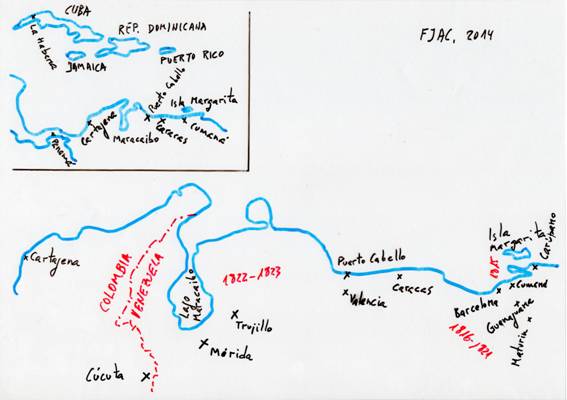 CUBA
La Habana
REP. DOMINICANA
JAMAICA
PUERTO RICO
Puerto Cabello
Isla Margarita
Panamá
Cartagena
Maracaibo
Caracas
Cumaná
FJAC, 2014
Cartagena
COLOMBIA
VENEZUELA
Lago
Maracaibo
1822-1823
Trujillo
Mérida
Cúcuta
Puerto Cabello
Valencia
Caracas
Isla
Margarita
Carúpano
1815
Cumaná
Barcelona
Maturín
1816-1821